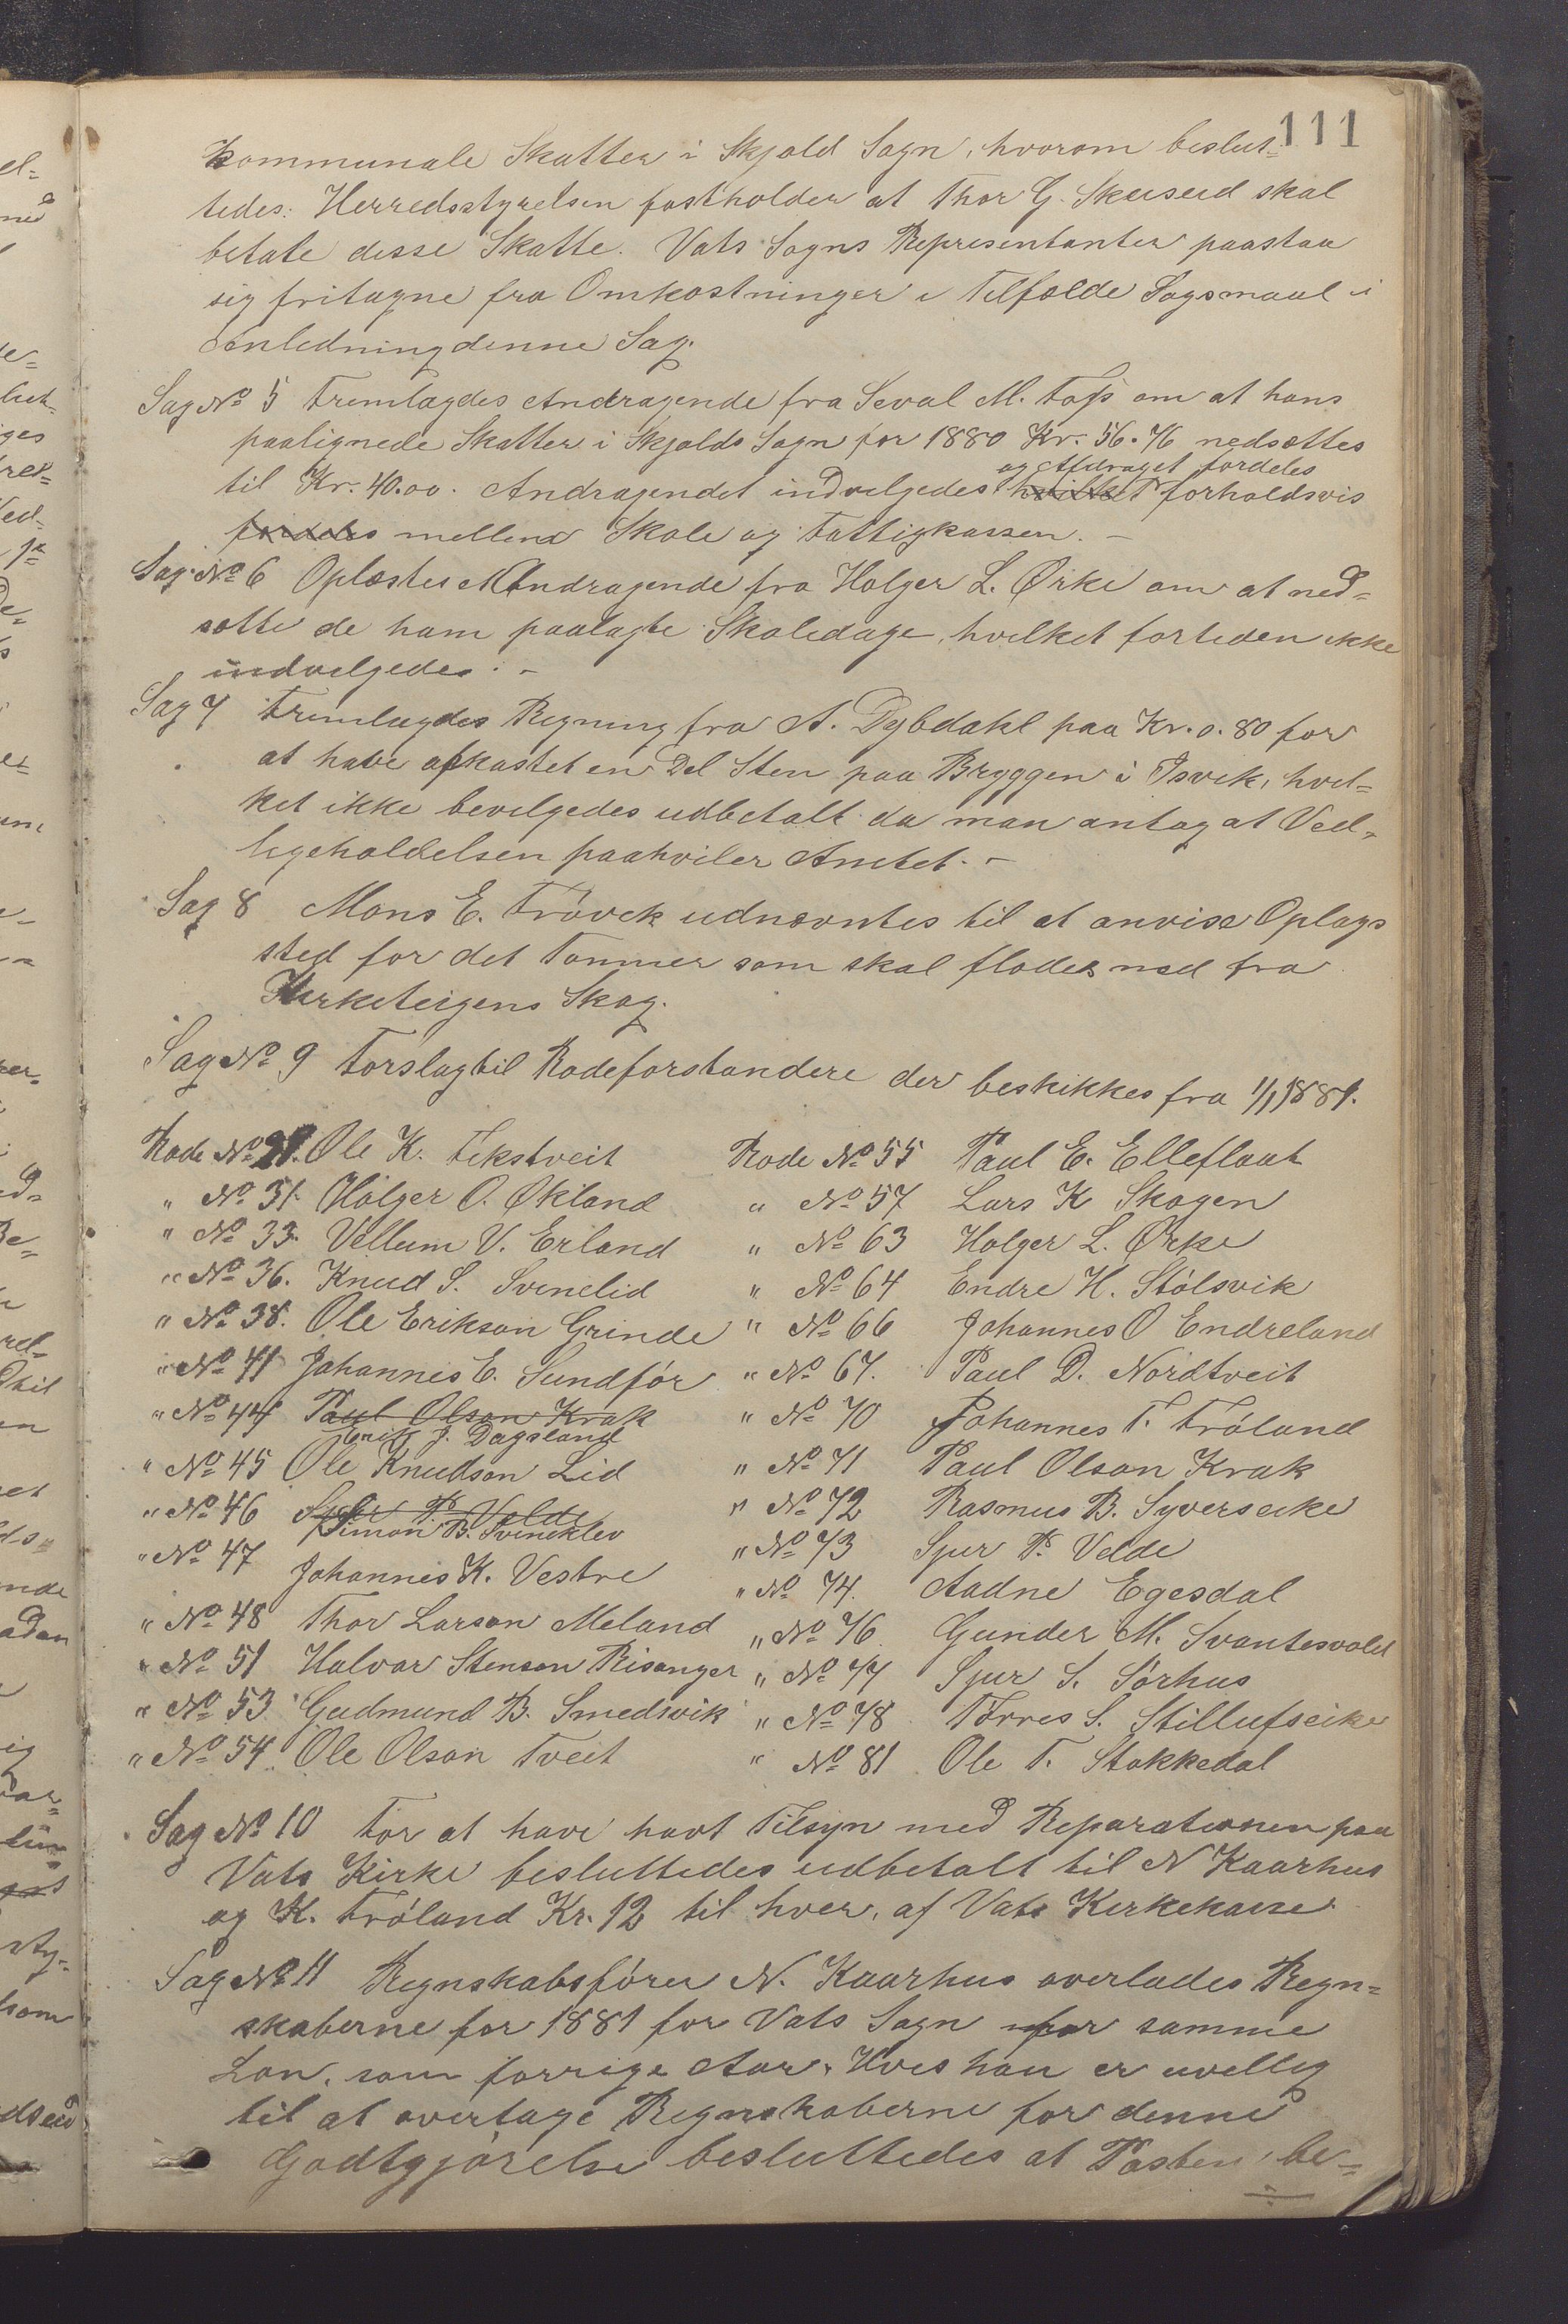 111
kommunale Skatter i Skjold Sogn, hvorom beslut-
tedes: Herredsstyrelsen fastholder at Thor G. Skeiseid skal
betale disse Skatte. Vats Sogns Representanter paastaa
sig fritagne fra Omkostninger i Tilfælde Sagsmaal i
Anledning denne Sag.
Sag No 5 Fremlagdes Andragende fra Seval M. Tofs om at hans
paalignede Skatter i Skjolds Sogn for 1880 Kr. 56.76 nedsættes
og Afdraget fordeles
til Kr. 40.00. Andragendet indvilgedes hvilket forholdsvis
fordeles mellem Skole og Fattigkassen. -
Sag No 6 Oplæstes Andragende fra Holger L. Ørke om at ned-
sætte de ham paalagte Skoledage, hvilket fortiden ikke
indvilgedes. -
Sag 7 Fremlagdes Regning fra A. Dybdahl paa Kr. 0.80 for
at have afkastet en Del Sten paa Bryggen i Isvik, hvil-
ket ikke bevilgedes udbetalt da man antog at Ved-
ligeholdelsen paahviler Amtet. -
Sag 8 Mons E. Frøvik udnævntes til at anvise Oplags
sted for det Tømmer som skal flødes ned fra
Kirketeigens Skog.
Sag No 9 Forslag til Rodeforstandere der beskikkes fra 1/1 1881.
Rode No 29. Ole K. Tekstveit
" No 31. Holger O. Økland
" No 33. Vellum V. Erland
" No 36. Knud S. Svinelid
" No 38. Ole Erikson Grinde
" No 41 Johannes E. Sundfór
" No 44 Paul Olson Krak
Erik J. Dagsland
" No 45 Ole Knudson Lid
" No 46 Sjur P. Velde
Simon B. Svineklev
" No 47 Johannes K. Vestre
" No 48 Thor Larson Meland
" No 51 Halvar Stenson Risanger
" No 53 Gudmund B. Smedsvik
" No 54 Ole Olson Tveit
Rode No 55 Paul E. Elleflaat
" No 57 Lars K Skogen
" No 63 Holger L. Ørke
" No 64 Endre H. Stólsvik
" No 66 Johannes O Endreland
" No 67. Paul D. Nordtveit
" No 70 Johannes T. Fróland
" No 71 Paul Olson Krak
" No 72 Rasmus B. Syverseike
" No 73 Sjur P. Velde
" No 74. Aadne Egesdal
" No 76 Gunder M. Svantesvold
" No 77 Sjur S. Sórhus
" No 78 Tórres S. Stillufseike
" No 81 Ole T. Stokkedal
Sag No 10 For at have havt Tilsyn med Reparationen paa
Vats Kirke besluttedes udbetalt til N Kaarhus
og K. Fróland Kr. 12 til hver, af Vats Kirkekasse.
Sag No 11 Regnskabsfórer N. Kaarhus overlades Regn-
skaberne for 1881 for Vats Sogn for samme
Løn, som forrige Aar. Hvis han er uvillig
til at overtage Regnskaberne for denne
Godtgjórelse besluttedes at Posten be-